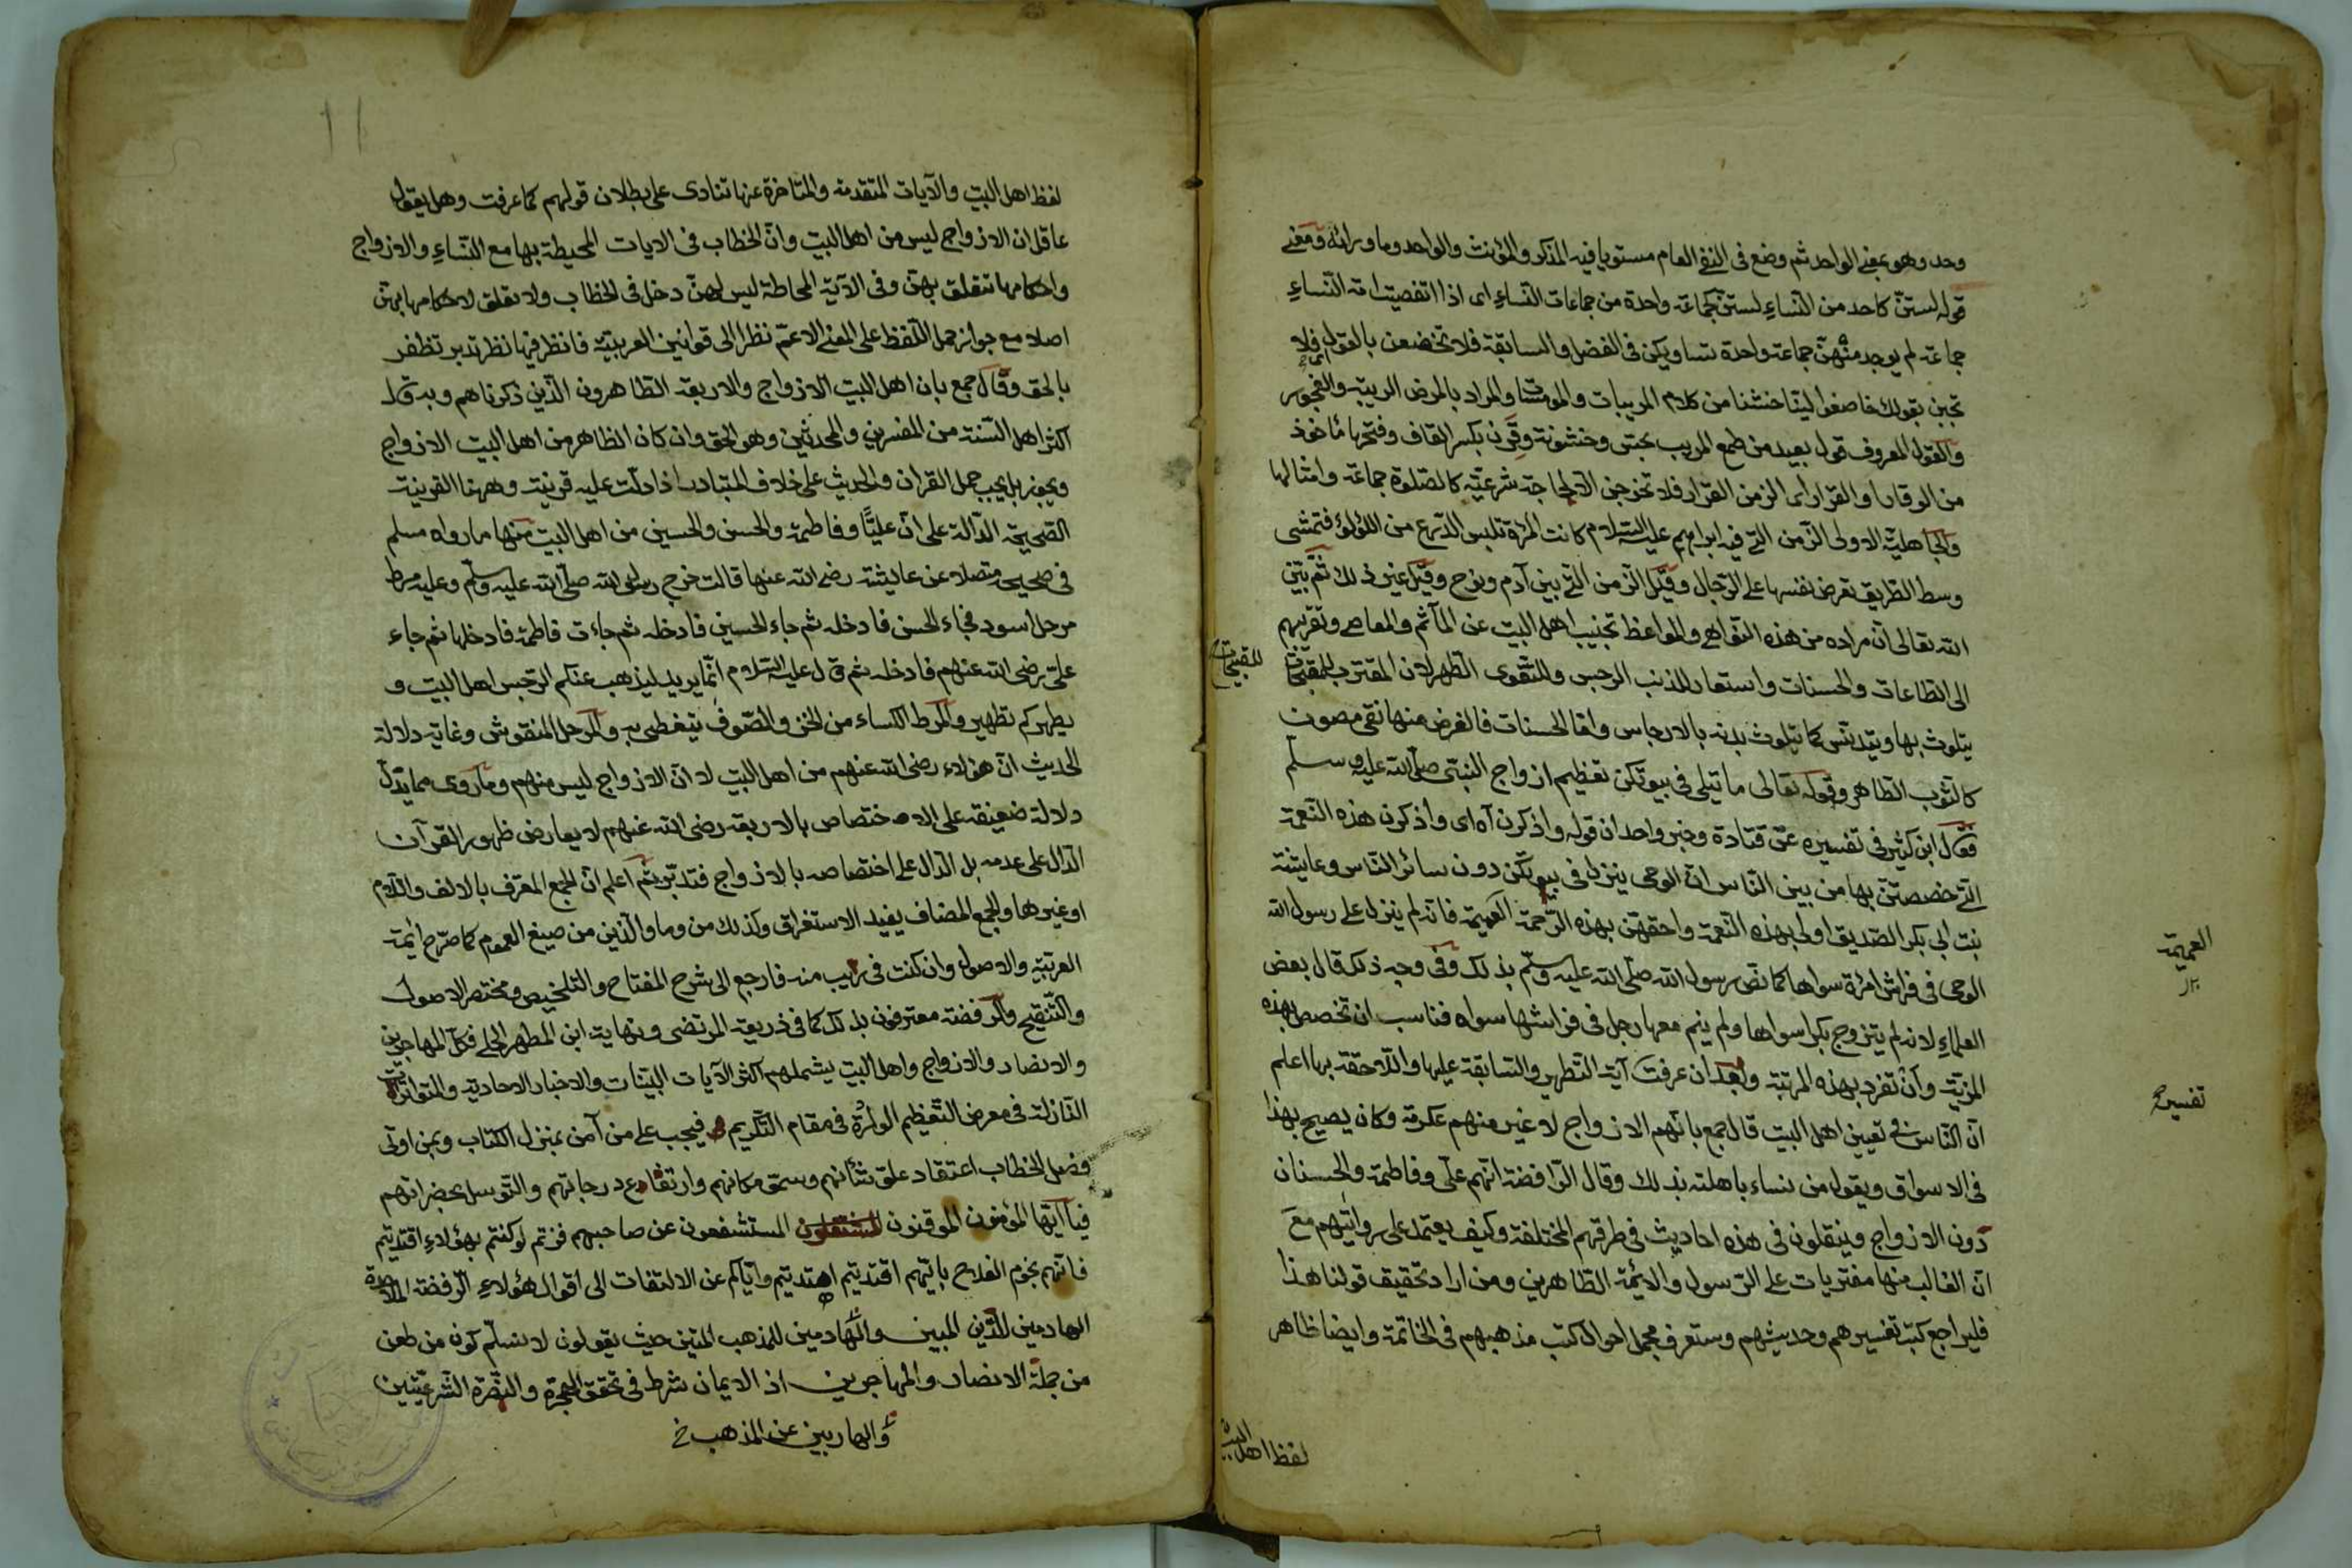 وحد وهو بمعنى الواحد ثم وضع فى النفى العام مستويا فيه المذكر والمؤنث والواحد وما ورائه ومعنى
قوله لستنّ كاحد من النّساءِ لستنّ كجماعة واحدة من جماعات النّساءِ اى اذا اتفصيت امة النّساءِ
جماعة لم يوجد منهنّ جماعة واحدة تساويكن فى الفضل والسابقة فلا تخضعن بالقول فلا
تجبن بقولك خاضعا ليّنا خنثنا من كلام المريبات والمومسات والمراد بالمرض الريبة والفجور
والقول المعروف قول بعيد من طمع المريب بجد وخشونة وقرن بكسر القاف وفتحها مأخوذ
من الوقار او القرار اى الزمن القرار فلا تخرجن الا لحاجة شرعيّة كالصّلوة جماعة وامثالها
والجاهليّة الاولى الزّمن التى فيه ابراهيم عليه السّلام كانت المرأة تلبس الدّرع من اللؤلؤ فتمشى
وسط الطّريق تعرض نفسها على الرّجال وقيل الزّمن التى بين آدم ونوح وقيل غير ذلك ثم بيّن
الله تعالى انّ مراده من هذه النّواهى والمواعظ تجنيب اهل البيت عن المآثم والمعاصى وتقريبهم
الى الطّاعات والحسنات واستعار للذنب الرجس وللتّقوى الطّهر لان المقترب للمقبّحات
للمقبحات
يتلوث بها ويتدنّس كما يتلوث بدنه بالارجاس واما الحسنات فالعرض منها نقى مصون
كالثّوب الطّاهر وقوله تعالى ما يتلى فى بيوتكن تعظيم ازواج النبىّ صلّى الله عليه وسلّم
فقال ابن كثير فى تفسيره عن قتادة وخير واحد ان قوله واذكرن آه اى واذكرن هذه النّعمة
الّتى خصصتنّ بها من بين النّاس انّ الوحى ينزل فى بيوتكن دون سائر النّاس وعايشة
بنت ابى بكر الصّديق اولى بهذه النّعمة واحقهنّ بهذه الرّحمة العميمة فانّه لم ينزل على رسول الله
العميمة
الوحى فى فراش امرأة سواها كما نصّ رسول الله صلّى الله عليه وسلّم بذلك وفى وجه ذلك قال بعض
العلماءِ لانه لم يتزوج بكرا سواها ولم ينم معها رجل فى فراشها سواه فناسب ان تخصص بهذه
المزيّة وانْ تفرد بهذه المرتبة وبعد ان عرفت آية التّطهير والسّابقة عليها واللّاحقة بها اعلم
تفسير
انّ النّاس فى تعيين اهل البيت قال جمع بانّهم الازواج لا غير منهم عكرمة وكان يصيح بهذا
فى الاسواق ويقول من نساء باهلته بذلك وقال الرّافضة انّهم علىّ وفاطمة والحسنان
دون الازواج وينقلون فى هذه احاديث فى طرقهم المختلفة وكيف يعتمد على روايتهم معَ
انّ الغالب منها مفتريات على الرّسول والائمّة الطّاهرين ومن اراد تحقيق قولنا هذا
فليراجع كتب تفسيرهم وحديثهم وستعرف مجمل احوال كتب مذهبهم فى الخاتمة وايضا ظاهر
لفظ اهل البيت
لفظ اهل البيت والآيات المتقدمة والمتاخرة عنها تنادى على بطلان قولهم كما عرفت وهل يقول
عاقل ان الازواج ليس من اهل البيت وانّ الخطاب فى الايات المحيطة بها مع النّساءِ والازواج
واحكامها تتعلق بهنّ وفى الآية المحاطة ليس لهنّ دخل فى الخطاب ولا تعلق لاحكامها بهنّ
اصلا مع جواز حمل اللّفظ على المعنى الاعمّ نظرا الى قوانين العربيّة فانظر فيها نظر تدبر تظفر
بالحق وقال جمع بان اهل البيت الازواج والاربعة الطّاهرون الّذين ذكرناهم وبه قال
اكثر اهل السّنة من المفسرين والمحدثين وهو الحق وان كان الظاهر من اهل البيت الازواج
ويجوز بل يجب حمل القران والحديث على خلاف المتبادر اذا دلّت عليه قرينة وههنا القرينة
الصّحيحة الدّالة على انّ عليًّا وفاطمة والحسن والحسين من اهل البيت منها ما رواه مسلم
فى صحيحه متصلا عن عايشة رضى الله عنها قالت خرج رسول الله صلّى الله عليه وسلّم وعليه مرط
مرحل اسود فجاء الحسن فادخله ثم جاء الحسين فادخله ثم جاءت فاطمة فادخلها ثم جاء
علىّ رضى الله عنهم فادخله ثم قال عليه السّلام انّما يريد ليذهب عنكم الرّجس اهل البيت و
يطهركم تطهير والمرط الكساء من الخز والصّوف يتغطى به والمرحل المنقوش وغاية دلالة
الحديث انّ هؤلاء رضى الله عنهم من اهل البيت لا انّ الازواج ليس منهم وما روى مما يدلّ
دلالة ضعيفة على الاختصاص بالاربعة رضى الله عنهم لا يعارض ظهور القرآن
الدّال على عدمه بل الدّال على اختصاصه بالازواج فتدبّر ثم اعلم انّ الجمع المعرف بالالف واللّام
او غيرها والجمع المضاف يفيد الاستغراق وكذلك من وما والّذين من صيغ العموم كما صرّح ائمة
العربيّة والاصول وان كنت فى ريب منه فارجع الى شرح المفتاح والتلخيص ومختصر الاصول
والتّنقيح والرّفضة معترفون بذلك كما فى ذريعة المرتضى ونهاية ابن المطهر الحلى فكلّ المهاجرين
والانصار والازواج واهل البيت يشملهم اكثر الآيات البيّنات والاخبار الاحادية والمتواترات
النّازلة فى معرض التّعظيم الواردة فى مقام التّكريم فيجب على من آمن بمنزل الكتاب وبمن اوتى
فصل الخطاب اعتقاد علوّ شأنهم وسموّ مكانهم وارتفاع درجاتهم والتّوسل بحضراتهم
فيا ايّها المؤمنون الموقنون المستشفعون عن صاحبهم فزتم لو كنتم بهؤلاءِ اقتديتم
فانّهم نجوم الفلاح بايّهم اقتديتم اهتديتم وايّاكم عن الالتفات الى اقوال هؤلاءِ الرّفضة الملاحدة
الهادمين للدّين المبين والهادمين للمذهب المتين حيث يقولون لا نسلّم كون من طعن
من جملة الانصار والمهاجرين اذ الايمان شرط فى تحقق الهجرة والنّصرة الشّرعيّتين
والهاربين عن المذهب خ